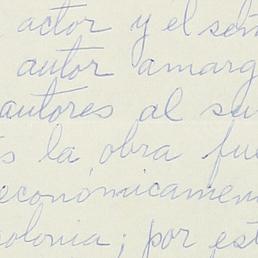 actor y el señ
autor amarg
autores al su
s la obra fue
económicamen
olonia; por est